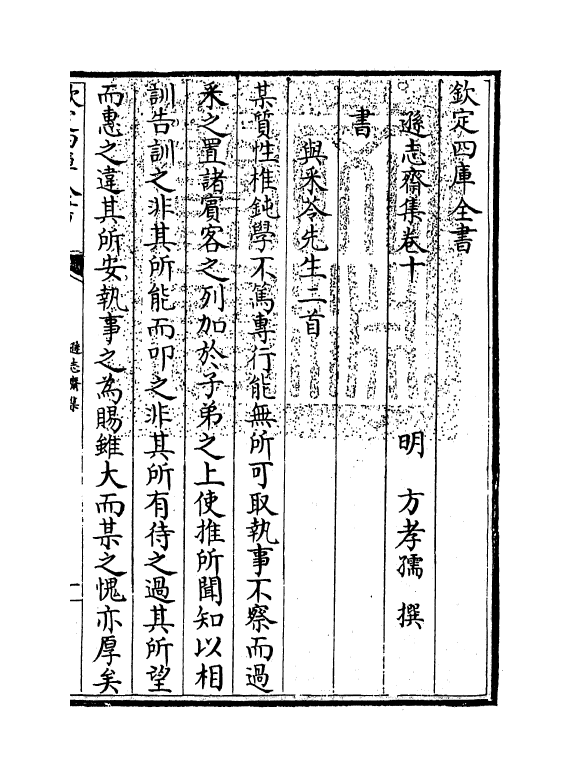 欽定四庫全書
遜志齋集卷十
明 方孝孺 撰
書
與釆苓先生二首
某質性椎鈍學不篤專行能無所可取執事不察而過
釆之置諸賓客之列加於子弟之上使推所聞知以相
訓告訓之非其所能而叩之非其所有待之過其所望
而惠之違其所安執事之為賜雖大而某之愧亦厚矣
遜志齋集
一